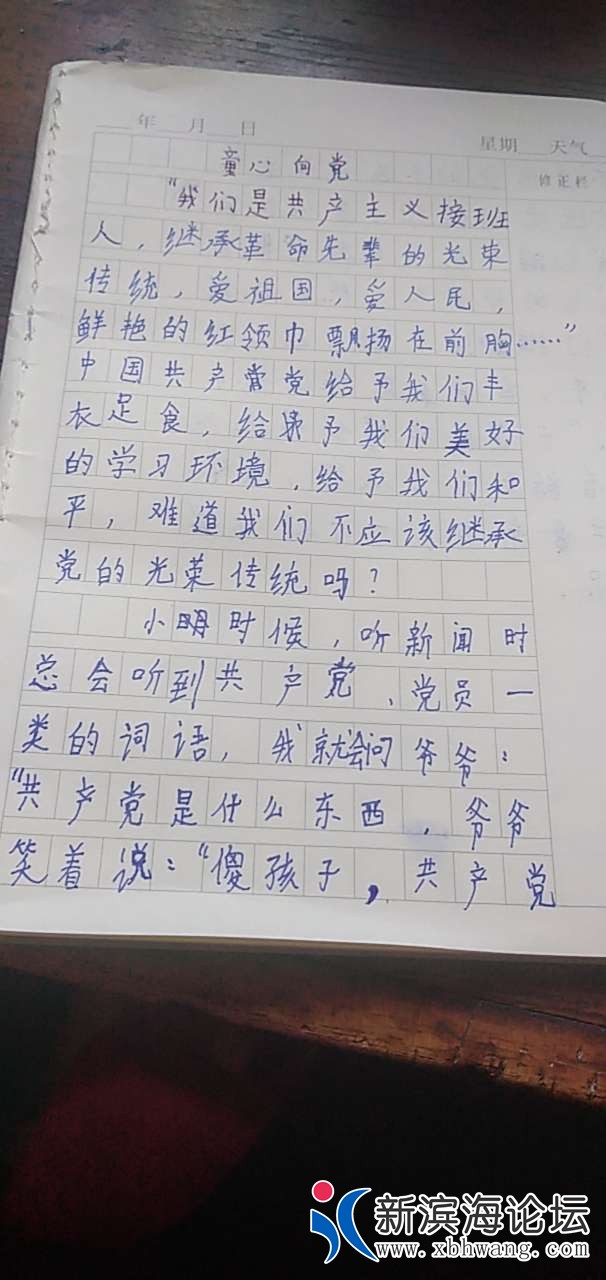 年 月 日
星期 天气
修正栏
童心向党
"我们是共产主义接班
人，继承革命先辈的光荣
传统，爱祖国，爱人民，
鲜艳的红领巾飘扬在前胸……"
中国共产党给予我们丰
衣足食，给予我们美好
的学习环境，给予我们和
平，难道我们不应该继承
党的光荣传统吗？
小时候，听新闻时
总会听到共产党、党员一
类的词语，我就会问爷爷：
"共产党是什么东西，爷爷
笑着说："傻孩子，共产党
新滨海论坛
www.xbhwang.com